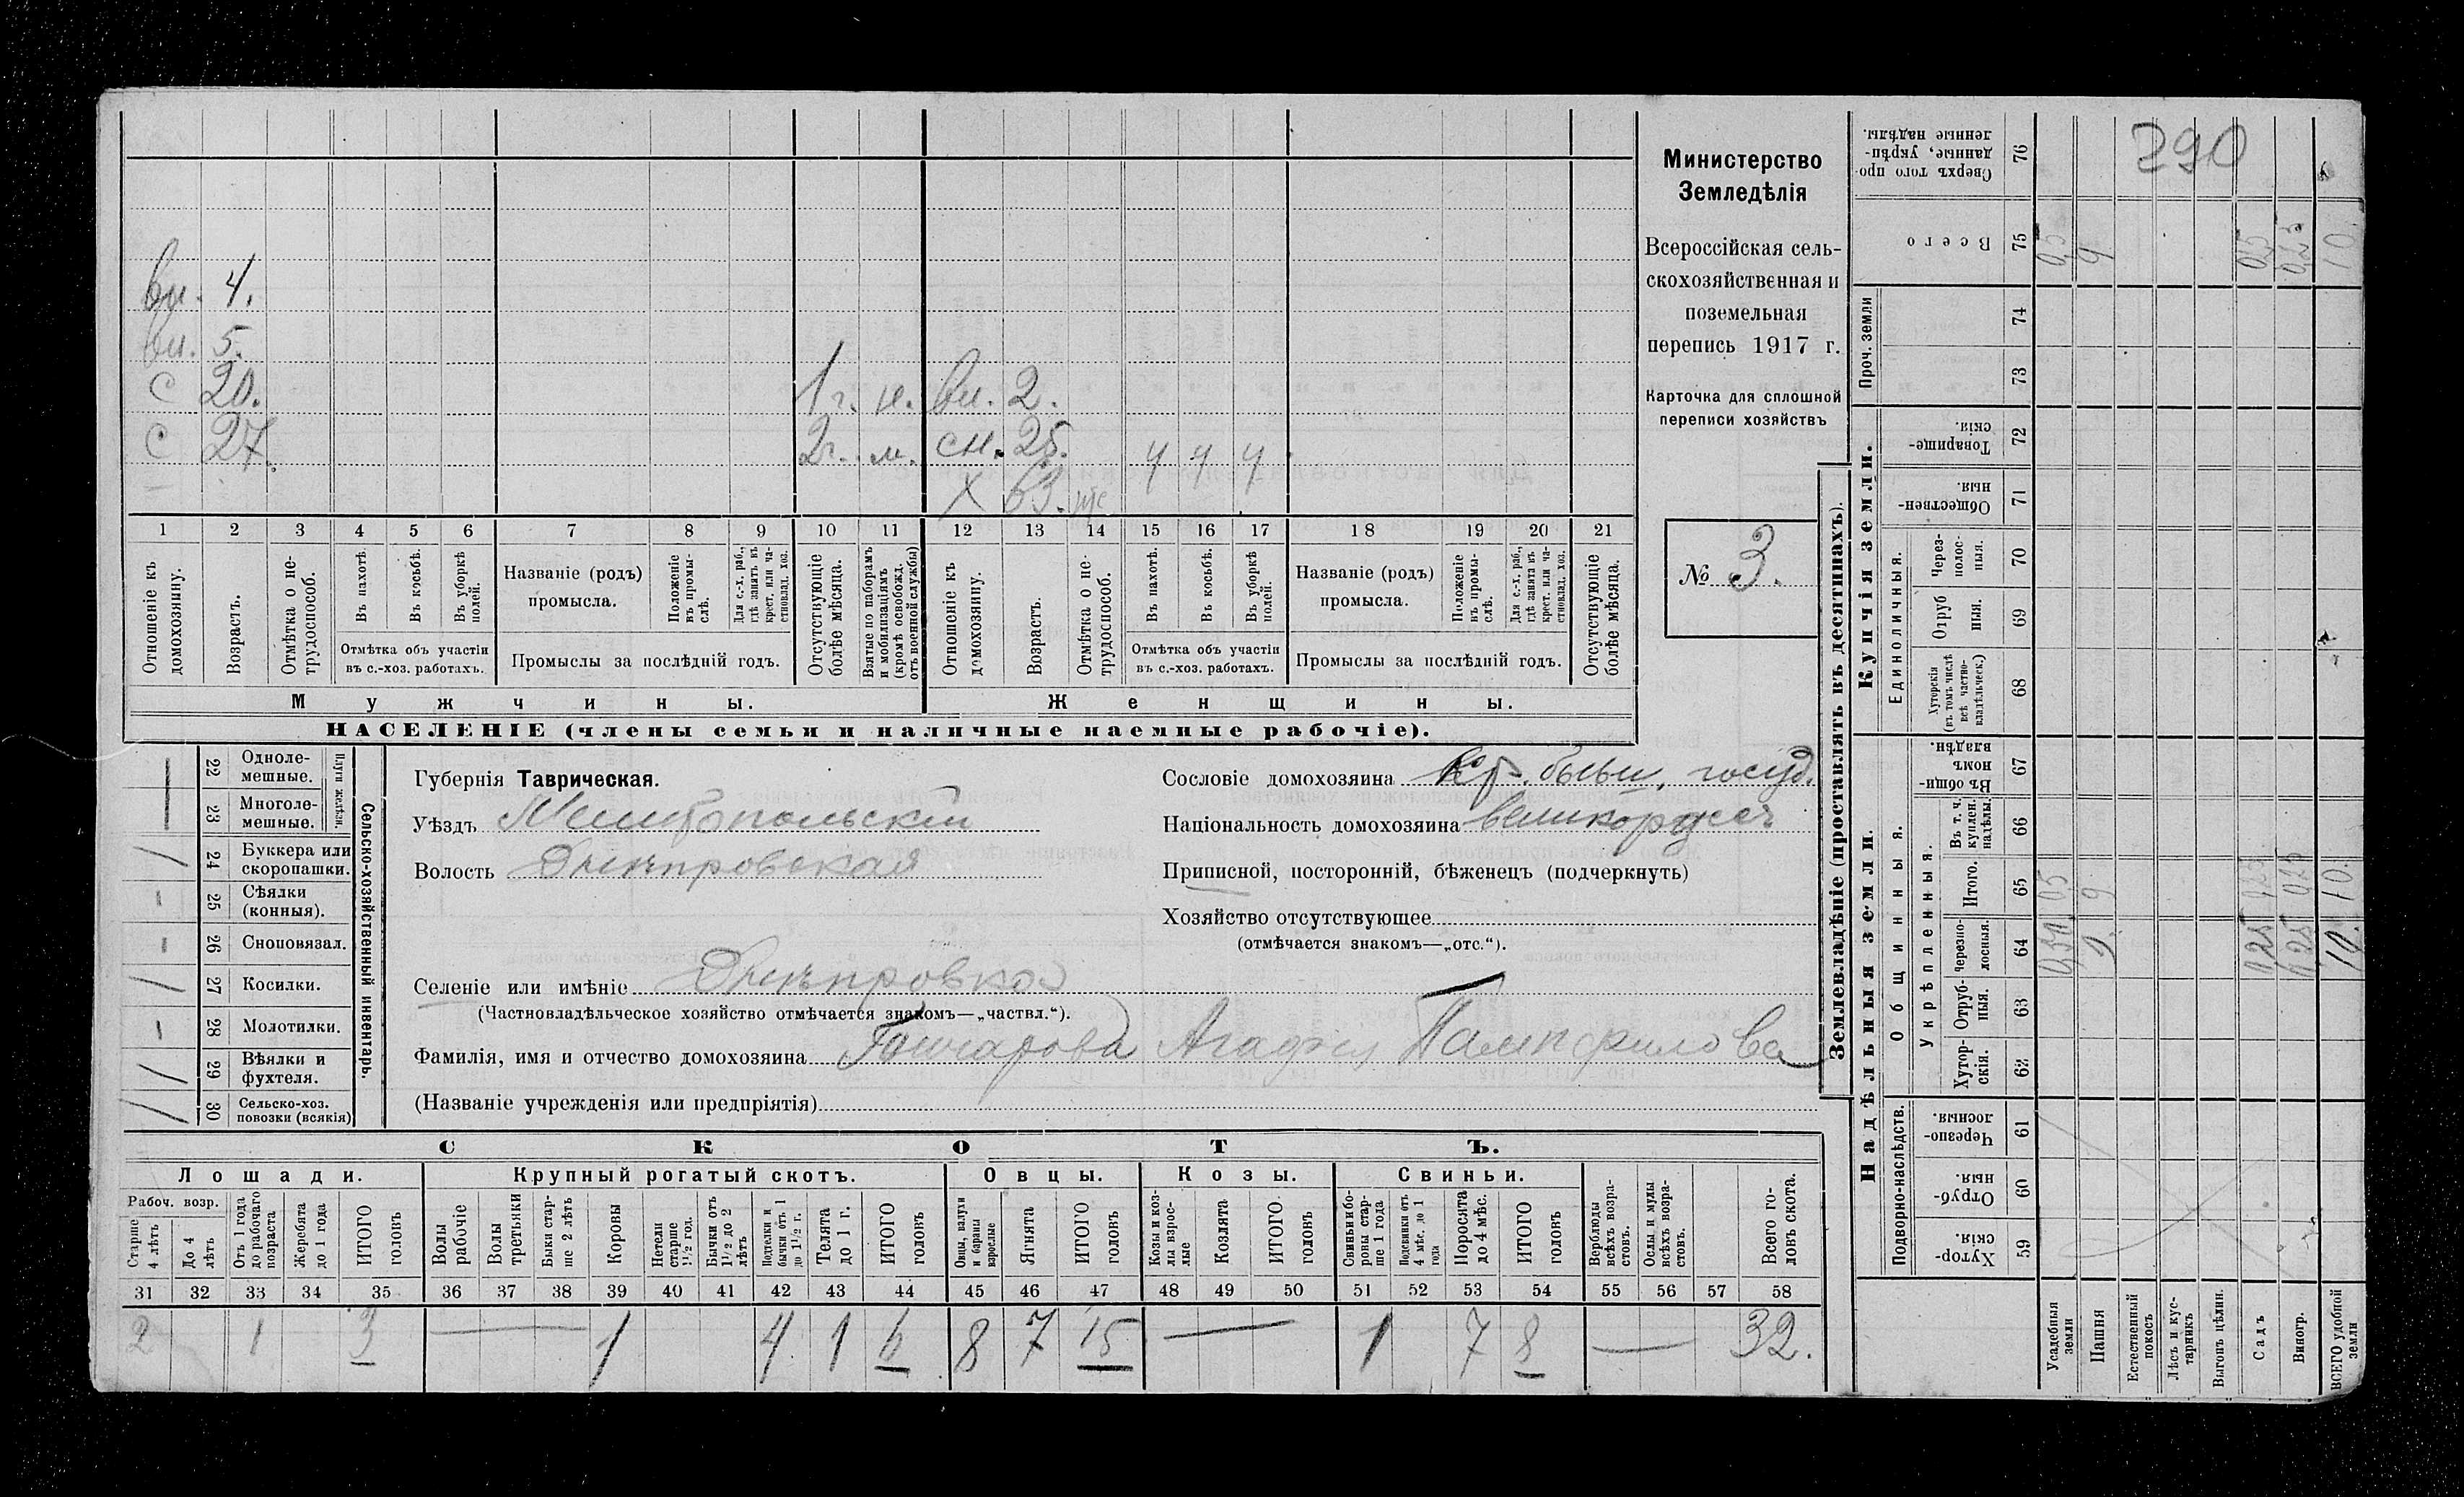 вн. 4.
вн. 5.
С 20. 1 г. н. вн. 2.
С 27. 2 г. м. сн. 25. ч ч ч
Х 63.
1 2 3 4 5 6 7 8 9 10 11 12 13 14 15 16 17 18 19 20 21
Отношеніе къ домохозяину.
Возрастъ.
Отмѣтка о нетрудоспособ.
Въ пахотѣ.
Въ косьбѣ.
Въ уборкѣ полей.
Отмѣтка объ участіи
въ с.-хоз. работахъ.
Названіе (родъ)
промысла.
Положеніе въ промыслѣ.
Для с.-х. раб., гдѣ занятъ въ крест. или частновлад. хоз.
Промыслы за послѣдній годъ.
Отсутствующіе болѣе мѣсяца.
Взятые по наборамъ и мобилизаціямъ (кромѣ освобожд. отъ военной службы)
Отношеніе къ домохозяину.
Возрастъ.
Отмѣтка о нетрудоспособ.
Въ пахотѣ.
Въ косьбѣ.
Въ уборкѣ полей.
Отмѣтка объ участіи
въ с.-хоз. работахъ.
Названіе (родъ)
промысла.
Положеніе въ промыслѣ.
Для с.-х. раб., гдѣ занята въ крест. или частновлад. хоз.
Промыслы за послѣдній годъ.
Отсутствующіе болѣе мѣсяца.
Мужчины. Женщины.
НАСЕЛЕНІЕ (члены семьи и наличные наемные рабочіе).
Министерство
Земледѣлія
Всероссійская сель-
скохозяйственная и
поземельная
перепись 1917 г.
Карточка для сплошной
переписи хозяйствъ
№ 3.
Сельско-хозяйственный инвентарь.
Плуги желѣзн.
22 Одноле-
мешные.
23 Многоле-
мешные.
24 Буккера или
скоропашки.
25 Сѣялки
(конныя).
26 Сноповязал.
27 Косилки.
28 Молотилки.
29 Вѣялки и
фухтеля.
30 Сельско-хоз.
повозки (всякія)
Губернія Таврическая.
Уѣздъ Мелитопольскій
Волость Днѣпровская
Сословіе домохозяина Кр. бывш. госуд.
Національность домохозяина великорусск
Приписной, посторонній, бѣженецъ (подчеркнуть)
Хозяйство отсутствующее
(отмѣчается знакомъ—„отс.“).
Селеніе или имѣніе Днѣпровка
(Частновладѣльческое хозяйство отмѣчается знакомъ—„частвл.“).
Фамилія, имя и отчество домохозяина Гончарова Агафія Памфилова
(Названіе учрежденія или предпріятія)
СКОТЪ.
Лошади. Крупный рогатый скотъ. Овцы. Козы. Свиньи.
Рабоч. возр.
Старше 4 лѣтъ
До 4 лѣтъ
Отъ 1 года до рабочаго возраста
Жеребята до 1 года
ИТОГО головъ
Волы рабочіе
Волы третьяки
Быки старше 2 лѣтъ
Коровы
Нетели старше 1½ год.
Бычки отъ 1½ до 2 лѣтъ
Подтелки и бычки отъ 1 до 1½ г.
Телята до 1 г.
ИТОГО головъ
Овцы, валухи и бараны взрослые
Ягнята
ИТОГО головъ
Козы и козлы взрослые
Козлята
ИТОГО головъ
Свиньи и боровы старше 1 года
Подсвинки отъ 4 мѣс. до 1 года
Поросята до 4 мѣс.
ИТОГО головъ
Верблюды всѣхъ возрастовъ.
Ослы и мулы всѣхъ возрастовъ.
Всего головъ скота.
31 32 33 34 35 36 37 38 39 40 41 42 43 44 45 46 47 48 49 50 51 52 53 54 55 56 57 58
2 1 3 — 1 4 1 6 8 7 15 — 1 7 8 — 32.
Землевладѣніе (проставлять въ десятинахъ).
Купчія земли.
Надѣльныя земли.
290
76 Сверхъ того проданные, укрѣпленные надѣлы.
75 Всего 0,5 9 0,25 0,25 10
Проч. земли
74
73
72 Товарищескія.
71 Общественныя.
Единоличныя.
70 Черезполосныя.
69 Отрубныя.
68 Хуторскія (въ томъ числѣ всѣ частновладѣльческ.)
Общинныя.
67 Въ общинномъ владѣн.
Укрѣпленныя.
66 Въ т. ч. куплен. надѣлы.
65 Итого. 0,5 9 0,25 0,25 10.
64 Черезполосныя. 0,50 9. 0,25 0,25 10.
63 Отрубныя.
62 Хуторскія.
Подворно-наслѣдств.
61 Черезполосныя.
60 Отрубныя.
59 Хуторскія.
Усадебныя земли
Пашня
Естественный покосъ
Лѣсъ и кустарникъ
Выгонъ цѣлин.
Садъ
Виногр.
ВСЕГО удобной земли